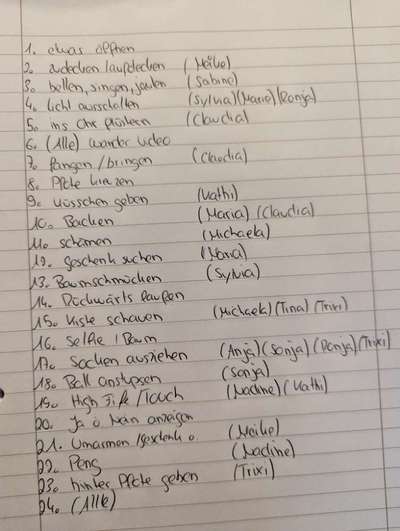 1. etwas öffnen
2. zudecken/aufdecken (Meike)
3. bellen, singen, jaulen (Sabine)
4. Licht ausschalten (Sylvia)(Marie)(Ronja)
5. ins Ohr flüstern (Claudia)
6. (Alle) wander video
7. fangen/bringen (Claudia)
8. Pfote kreuzen
9. Küsschen geben (Kathi)
10. Backen (Maria)/(Claudia)
11. schämen (Michaela)
12. Geschenk suchen (Maria)
13. Baumschmücken (Sylvia)
14. Rückwärts laufen
15. Kiste schauen (Michaela)(Tina)(Trixi)
16. Selfie/Baum
17. Socken ausziehen (Anja)(Sonja)(Ronja)(Trixi)
18. Ball anstupsen (Sonja)
19. High Five/Touch (Nadine)(Kathi)
20. Ja o Nein anzeigen
21. Umarmen/geschenk o. (Meike)
22. Peng (Nadine)
23. hinter Pfote geben (Trixi)
24. (Alle)